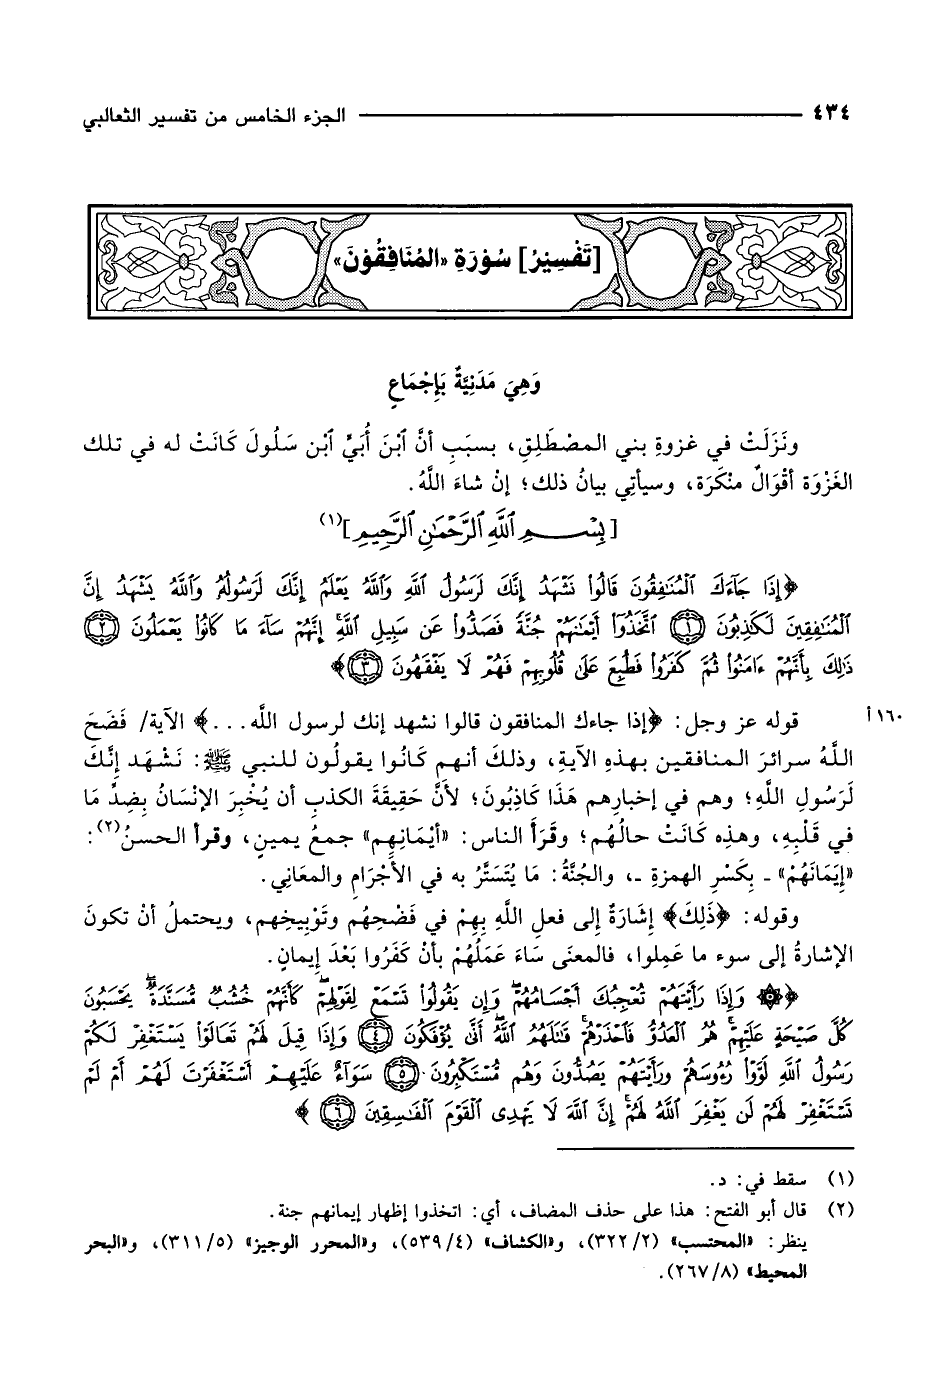 ٤٣٤ الجزء الخامس من تفسير الثعالبي
[تَفْسِيْرُ] سُوْرَةِ «المُنَافِقُوْنَ»
وَهِيَ مَدَنِيَّةٌ بَإِجْمَاعٍ
ونَزَلَتْ في غزوةِ بني المصْطَلِقِ، بسبَبِ أنَّ ٱبْنَ أُبَيٍّ ٱبْن سَلُولَ كَانَتْ له في تلك
الغَزْوَة أقْوَالٌ منْكَرَة، وسيأتِي بيانُ ذلك؛ إنْ شاءَ اللَّهُ.
[بِسْمِ ٱللَّهِ ٱلرَّحْمَٰنِ ٱلرَّحِيمِ](١)
﴿إِذَا جَآءَكَ ٱلْمُنَٰفِقُونَ قَالُوا۟ نَشْهَدُ إِنَّكَ لَرَسُولُ ٱللَّهِ وَٱللَّهُ يَعْلَمُ إِنَّكَ لَرَسُولُهُۥ وَٱللَّهُ يَشْهَدُ إِنَّ
ٱلْمُنَٰفِقِينَ لَكَٰذِبُونَ ١ ٱتَّخَذُوٓا۟ أَيْمَٰنَهُمْ جُنَّةً فَصَدُّوا۟ عَن سَبِيلِ ٱللَّهِۚ إِنَّهُمْ سَآءَ مَا كَانُوا۟ يَعْمَلُونَ ٢
ذَٰلِكَ بِأَنَّهُمْ ءَامَنُوا۟ ثُمَّ كَفَرُوا۟ فَطُبِعَ عَلَىٰ قُلُوبِهِمْ فَهُمْ لَا يَفْقَهُونَ ٣﴾
قوله عز وجل: ﴿إذا جاءك المنافقون قالوا نشهد إنك لرسول اللَّه...﴾ الآية/ فَضَحَ ١٦٠أ
اللَّهُ سرائرَ المنافقين بهذهِ الآيةِ، وذلكَ أنهم كَانُوا يقولُون للنبي ﷺ: نَشْهَد إنَّكَ
لَرَسُولِ اللَّهِ؛ وهم في إخبارِهم هَذَا كَاذِبُونَ؛ لأَنَّ حَقِيقَةَ الكذبِ أن يُخْبِرَ الإنْسَانُ بِضِدِّ مَا
في قَلْبِهِ، وهذِه كَانَتْ حالُهُم؛ وقَرَأَ الناس: «أيْمَانِهِم» جمعُ يمينٍ، وقرأ الحسنُ(٢):
«إِيمَانَهُمْ» ـ بِكَسْرِ الهمزةِ ـ، والجُنَّةُ: مَا يُتَسَتَّرُ به في الأجْرَامِ والمعَانِي.
وقوله: ﴿ذَلِكَ﴾ إشَارَةٌ إلى فعلِ اللَّهِ بِهِمْ في فَضْحِهُم وتَوْبِيخِهِم، ويحتملُ أنْ تكونَ
الإشارةُ إلى سوء ما عَمِلوا، فالمعنى سَاءَ عَمَلُهُمْ بأنْ كَفَرُوا بَعْدَ إيمانٍ.
﴿۞ وَإِذَا رَأَيْتَهُمْ تُعْجِبُكَ أَجْسَامُهُمْۖ وَإِن يَقُولُوا۟ تَسْمَعْ لِقَوْلِهِمْۖ كَأَنَّهُمْ خُشُبٌ مُّسَنَّدَةٌۖ يَحْسَبُونَ
كُلَّ صَيْحَةٍ عَلَيْهِمْۚ هُمُ ٱلْعَدُوُّ فَٱحْذَرْهُمْۚ قَٰتَلَهُمُ ٱللَّهُۖ أَنَّىٰ يُؤْفَكُونَ ٤ وَإِذَا قِيلَ لَهُمْ تَعَالَوْا۟ يَسْتَغْفِرْ لَكُمْ
رَسُولُ ٱللَّهِ لَوَّوْا۟ رُءُوسَهُمْ وَرَأَيْتَهُمْ يَصُدُّونَ وَهُم مُّسْتَكْبِرُونَ ٥ سَوَآءٌ عَلَيْهِمْ أَسْتَغْفَرْتَ لَهُمْ أَمْ لَمْ
تَسْتَغْفِرْ لَهُمْ لَن يَغْفِرَ ٱللَّهُ لَهُمْۚ إِنَّ ٱللَّهَ لَا يَهْدِى ٱلْقَوْمَ ٱلْفَٰسِقِينَ ٦﴾
(١) سقط في: د.
(٢) قال أبو الفتح: هذا على حذف المضاف، أي: اتخذوا إظهار إيمانهم جنة.
ينظر: «المحتسب» (٣٢٢/٢)، و«الكشاف» (٥٣٩/٤)، و«المحرر الوجيز» (٣١١/٥)، و«البحر
المحيط» (٢٦٧/٨).